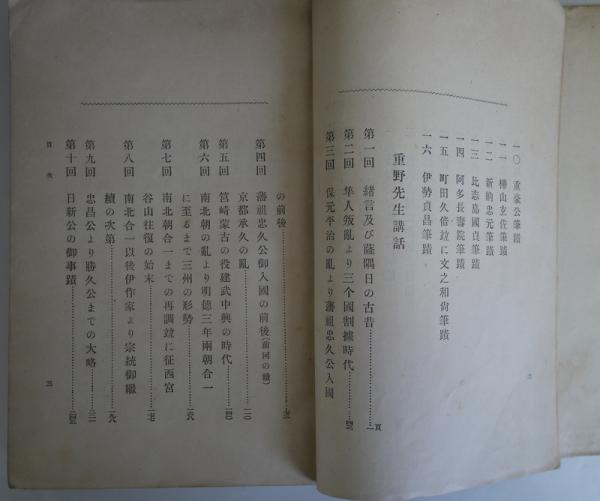 一〇 重豪公筆蹟
一一 樺山玄佐筆蹟
一二 新納忠元筆蹟
一三 比志島國貞筆蹟
一四 阿多長壽院筆蹟
一五 町田久倍竝に文之和尚筆蹟
一六 伊勢貞昌筆蹟
重野先生講話
第一回 緒言及び薩隅日の古昔
頁
一
第二回 隼人叛亂より三个國割據時代
第三回 保元平治の亂より藩祖忠久公入國
の前後
第四回 藩祖忠久公御入國の前後(前回の續)
京都承久の亂
第五回 筥崎蒙古の役建武中興の時代
第六回 南北朝の亂より明德三年兩朝合一
に至るまで三州の形勢
第七回 南北朝合一までの再調竝に征西宮
谷山往復の始末
第八回 南北合一以後伊作家より宗統御繼
續の次第
第九回 忠昌公より勝久公までの大略
第十回 日新公の御事蹟
目次
三